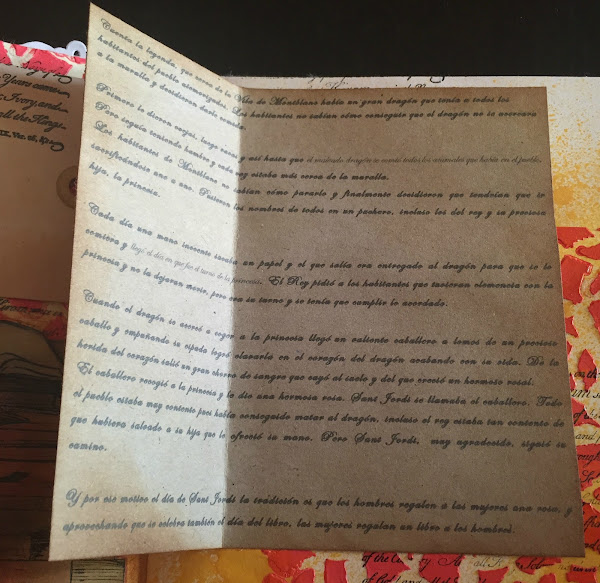 Cuenta la leyenda, que cerca de la Villa de Montblanc había un gran dragón que tenía a todos los
habitantes del pueblo atemorizados. Los habitantes no sabían cómo conseguir que el dragón no se acercara
a la muralla y decidieron darle comida.
Primero le dieron ovejas, luego vacas y así hasta que el malvado dragón se comió todos los animales que había en el pueblo.
Pero seguía teniendo hambre y cada vez estaba más cerca de la muralla.
Los habitantes de Montblanc no sabían cómo pararlo y finalmente decidieron que tendrían que ir
sacrificándose uno a uno. Pusieron los nombres de todos en un puchero, incluso los del rey y su preciosa
hija, la princesa.
Cada día una mano inocente sacaba un papel y el que salía era entregado al dragón para que se lo
comiera y llegó el día en que fue el turno de la princesa. El Rey pidió a los habitantes que tuvieran clemencia con la
princesa y no la dejaran morir, pero era su turno y se tenía que cumplir lo acordado.
Cuando el dragón se acercó a coger a la princesa llegó un valiente caballero a lomos de un precioso
caballo y empuñando su espada logró clavarla en el corazón del dragón acabando con su vida. De la
herida del corazón salió un gran chorro de sangre que cayó al suelo y del que creció un hermoso rosal.
El caballero recogió a la princesa y le dio una hermosa rosa. Sant Jordi se llamaba el caballero. Todo
el pueblo estaba muy contento pues había conseguido matar al dragón, incluso el rey estaba tan contento de
que hubiera salvado a su hija que le ofreció su mano. Pero Sant Jordi, muy agradecido, siguió su
camino.
Y por ese motivo el día de Sant Jordi la tradición es que los hombres regalen a las mujeres una rosa, y
aprovechando que se celebra también el día del libro, las mujeres regalan un libro a los hombres.
Ivory, and
all the Kings